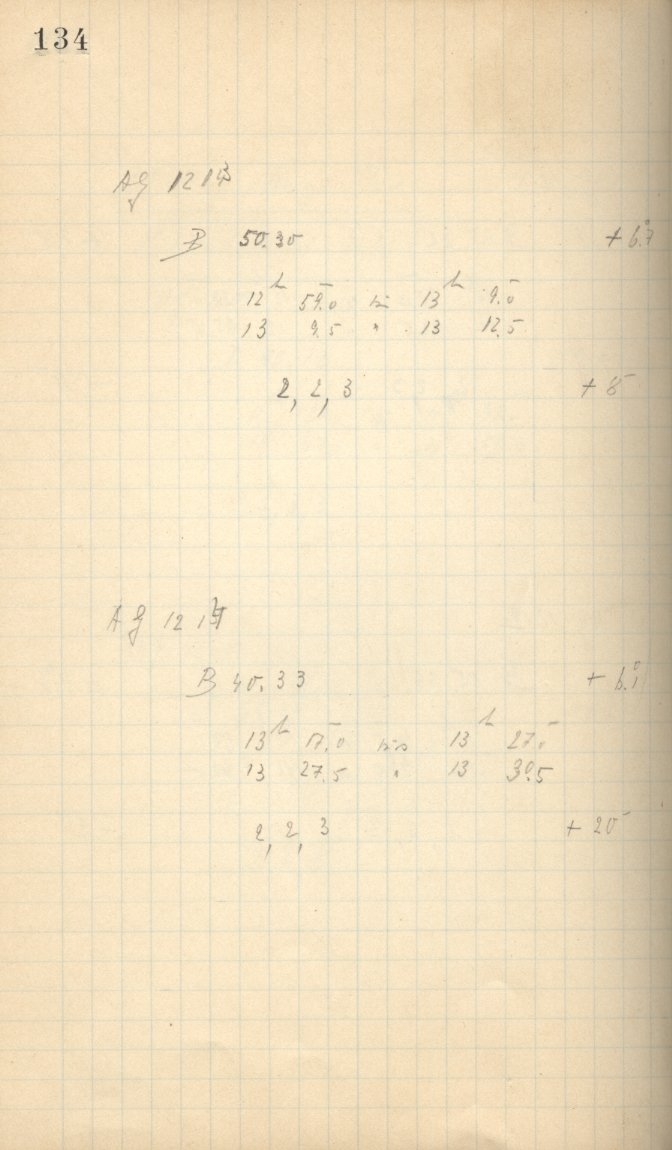 134
AG 1213
B 50.30 + 6.°7
12ʰ 59.⁻0 bis 13ʰ 9.⁻0
13 9.5 " 13 12.5
2, 2, 3 + 8⁻
AG 1214
B 40.33 + 6.°1
13ʰ 17.⁻0 bis 13ʰ 27.⁻0
13 27.5 " 13 30.5
2, 2, 3 + 20⁻